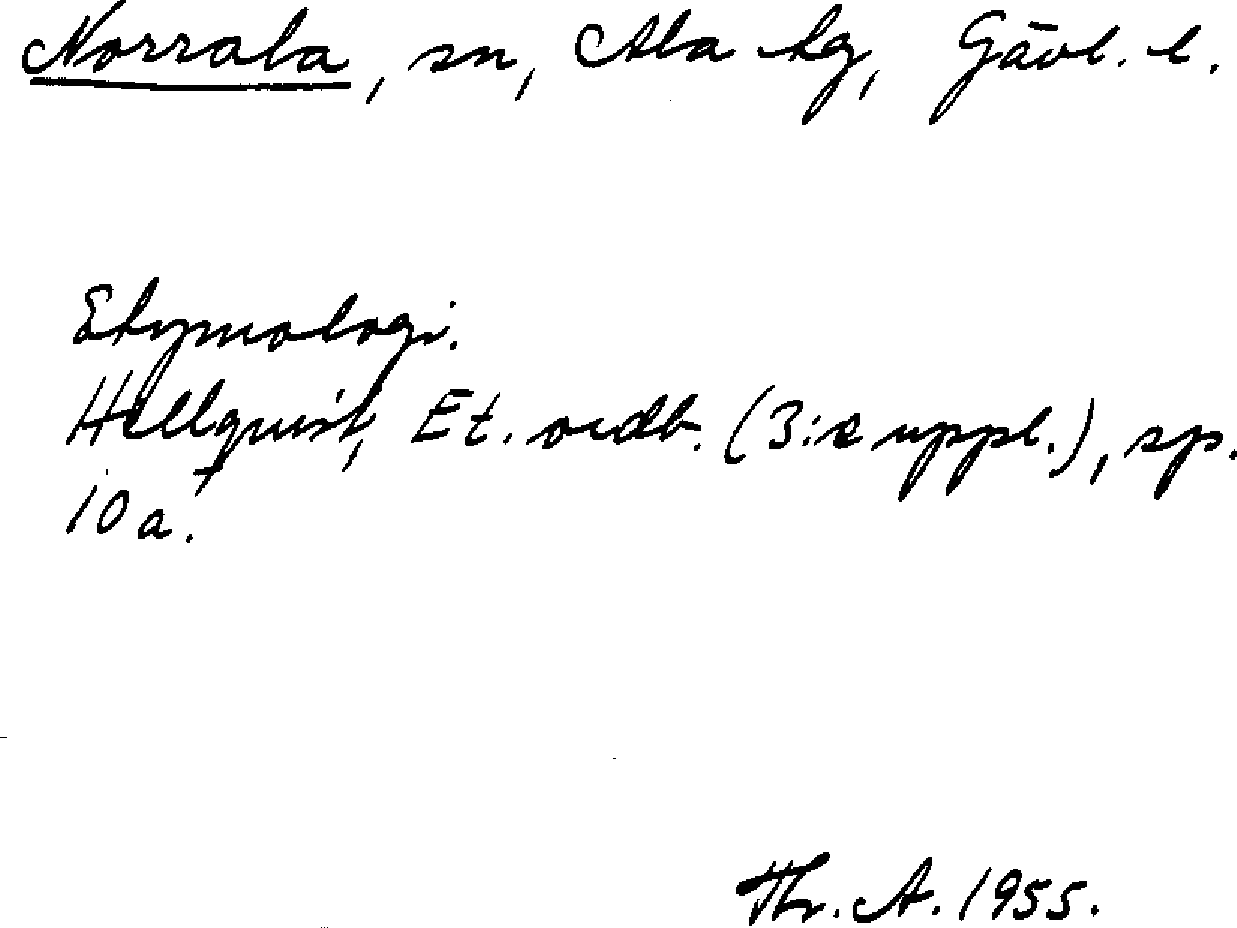 Norrala, sn, Ala hg, Gävl. l.
Etymologi.
Hellquist, Et. ordb. (3:e uppl.), sp.
10 a.
Thr. A. 1955.